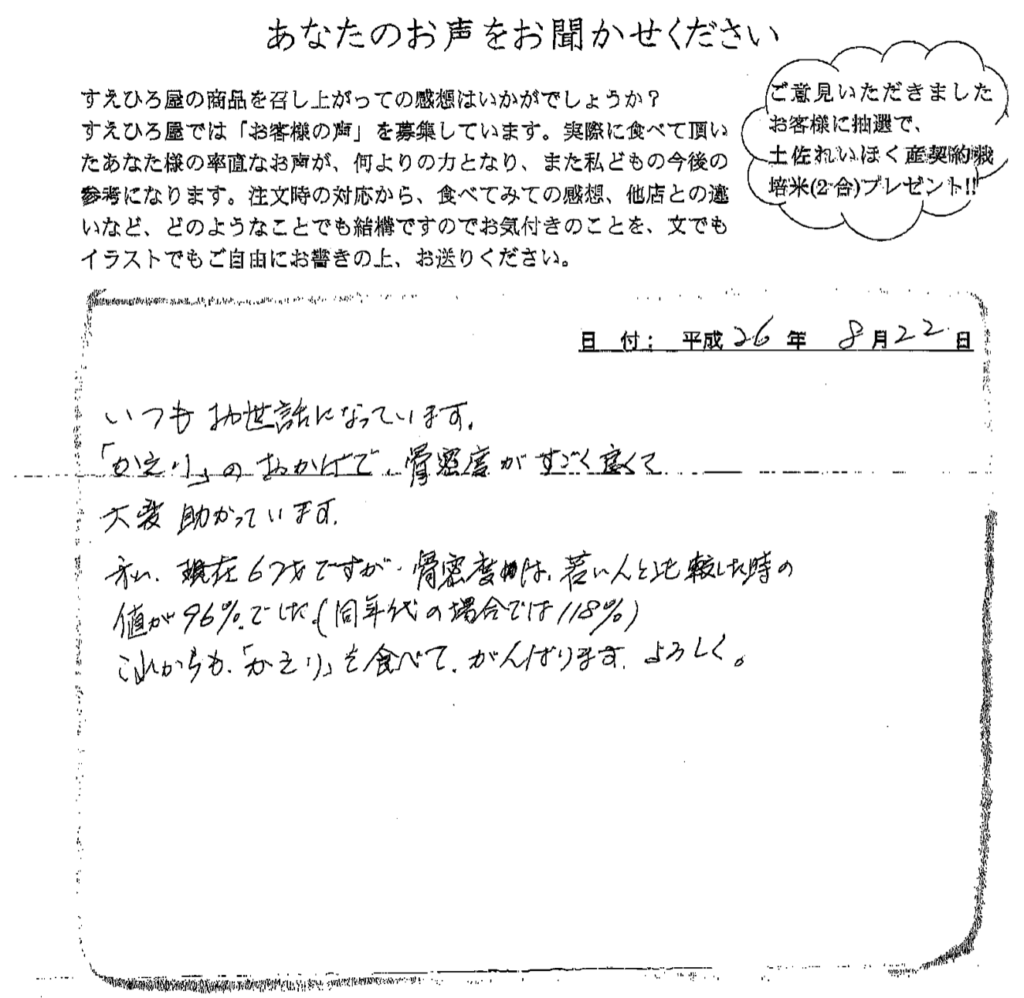 あなたのお声をお聞かせください
すえひろ屋の商品を召し上がっての感想はいかがでしょうか?
すえひろ屋では「お客様の声」を募集しています。実際に食べて頂い
たあなた様の率直なお声が、何よりの力となり、また私どもの今後の
参考になります。注文時の対応から、食べてみての感想、他店との違
いなど、どのようなことでも結構ですのでお気付きのことを、文でも
イラストでもご自由にお書きの上、お送りください。
ご意見いただきました
お客様に抽選で、
土佐れいほく産契約栽
培米(2合)プレゼント!!
日 付: 平成 26 年 8 月 22 日
いつもお世話になっています。
「かえり」のおかげで、骨密度がすごく高くて
大変助かっています。
私、現在67才ですが、骨密度は、若い人と比較した時の
値が96%でした。(同年代の場合では118%)
これからも、「かえり」を食べて、がんばります。よろしく。